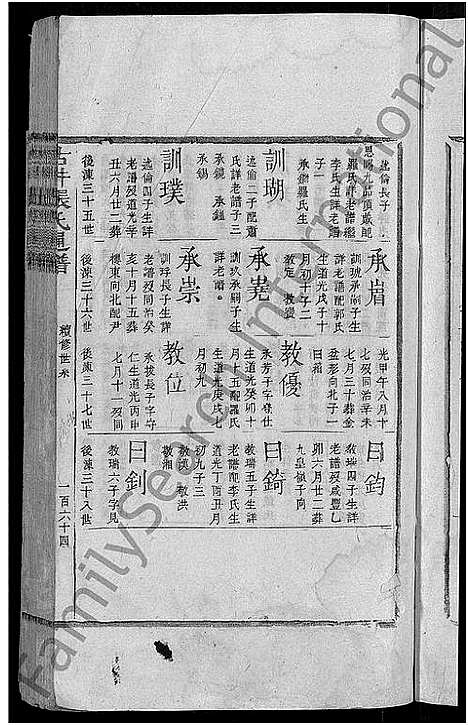 遠倫長子
恩賜九品頂戴配
羅氏詳老譜繼
李氏生詳老譜
子一
承鑑羅氏生
訓瑚
遠倫二子配蕭
氏詳老譜子三
承鏡 承鈺
承錫
訓璞
遠倫四子生詳
老譜歿道光辛
丑六月廿二葬
後涑三十五世
承㟭
訓琥承嗣子生
詳老譜配郭氏
生道光戊子十
月初十子二
教定 教優
承堯
訓玖承嗣子生
詳老譜
承崇
訓琈長子生詳
老譜歿同治癸
亥十月十五葬
樓東向北配尹
後涑三十六世
光甲午八月十
七歿同治辛未
七月三十葬金
盆形向北子一
曰裕
教優
承芳子字登仕
生道光癸卯十
月十五配羅氏
生道光庚戌七
月初九
教位
承拔長子字守
仁生道光丙申
七月十一歿同
後涑三十七世
曰鈞
教瑞四子生詳
老譜歿咸豐乙
卯六月廿二葬
九皇嶺子向
曰錡
教瑞五子生詳
老譜配李氏生
道光丁酉五月
初九子三
敬漢 敬洪
敬湘
曰釗
教瑞六子字見
後涑三十八世
張氏通譜
續修世系
一百六十四
FamilySearch International